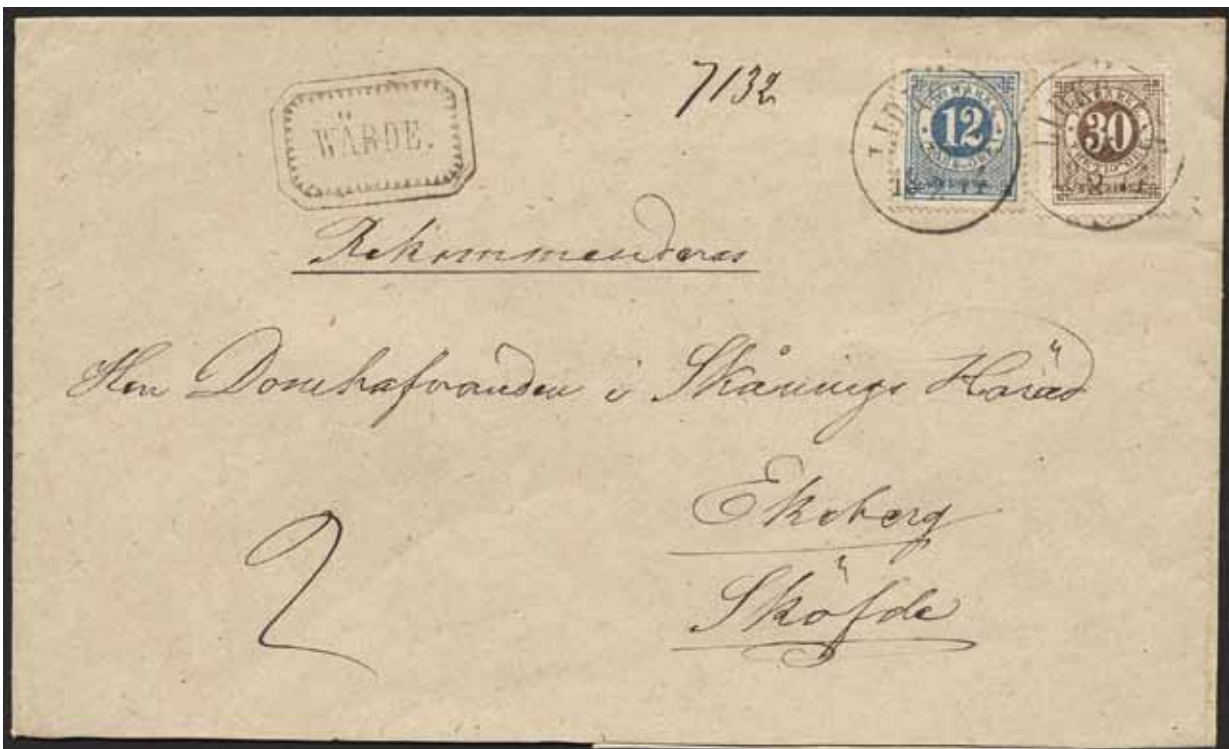 7132
12
30
WÄRDE.
Rekommenderas
Herr Domhafvanden i Skånings Härad
Ekeberg
Sköfde
2